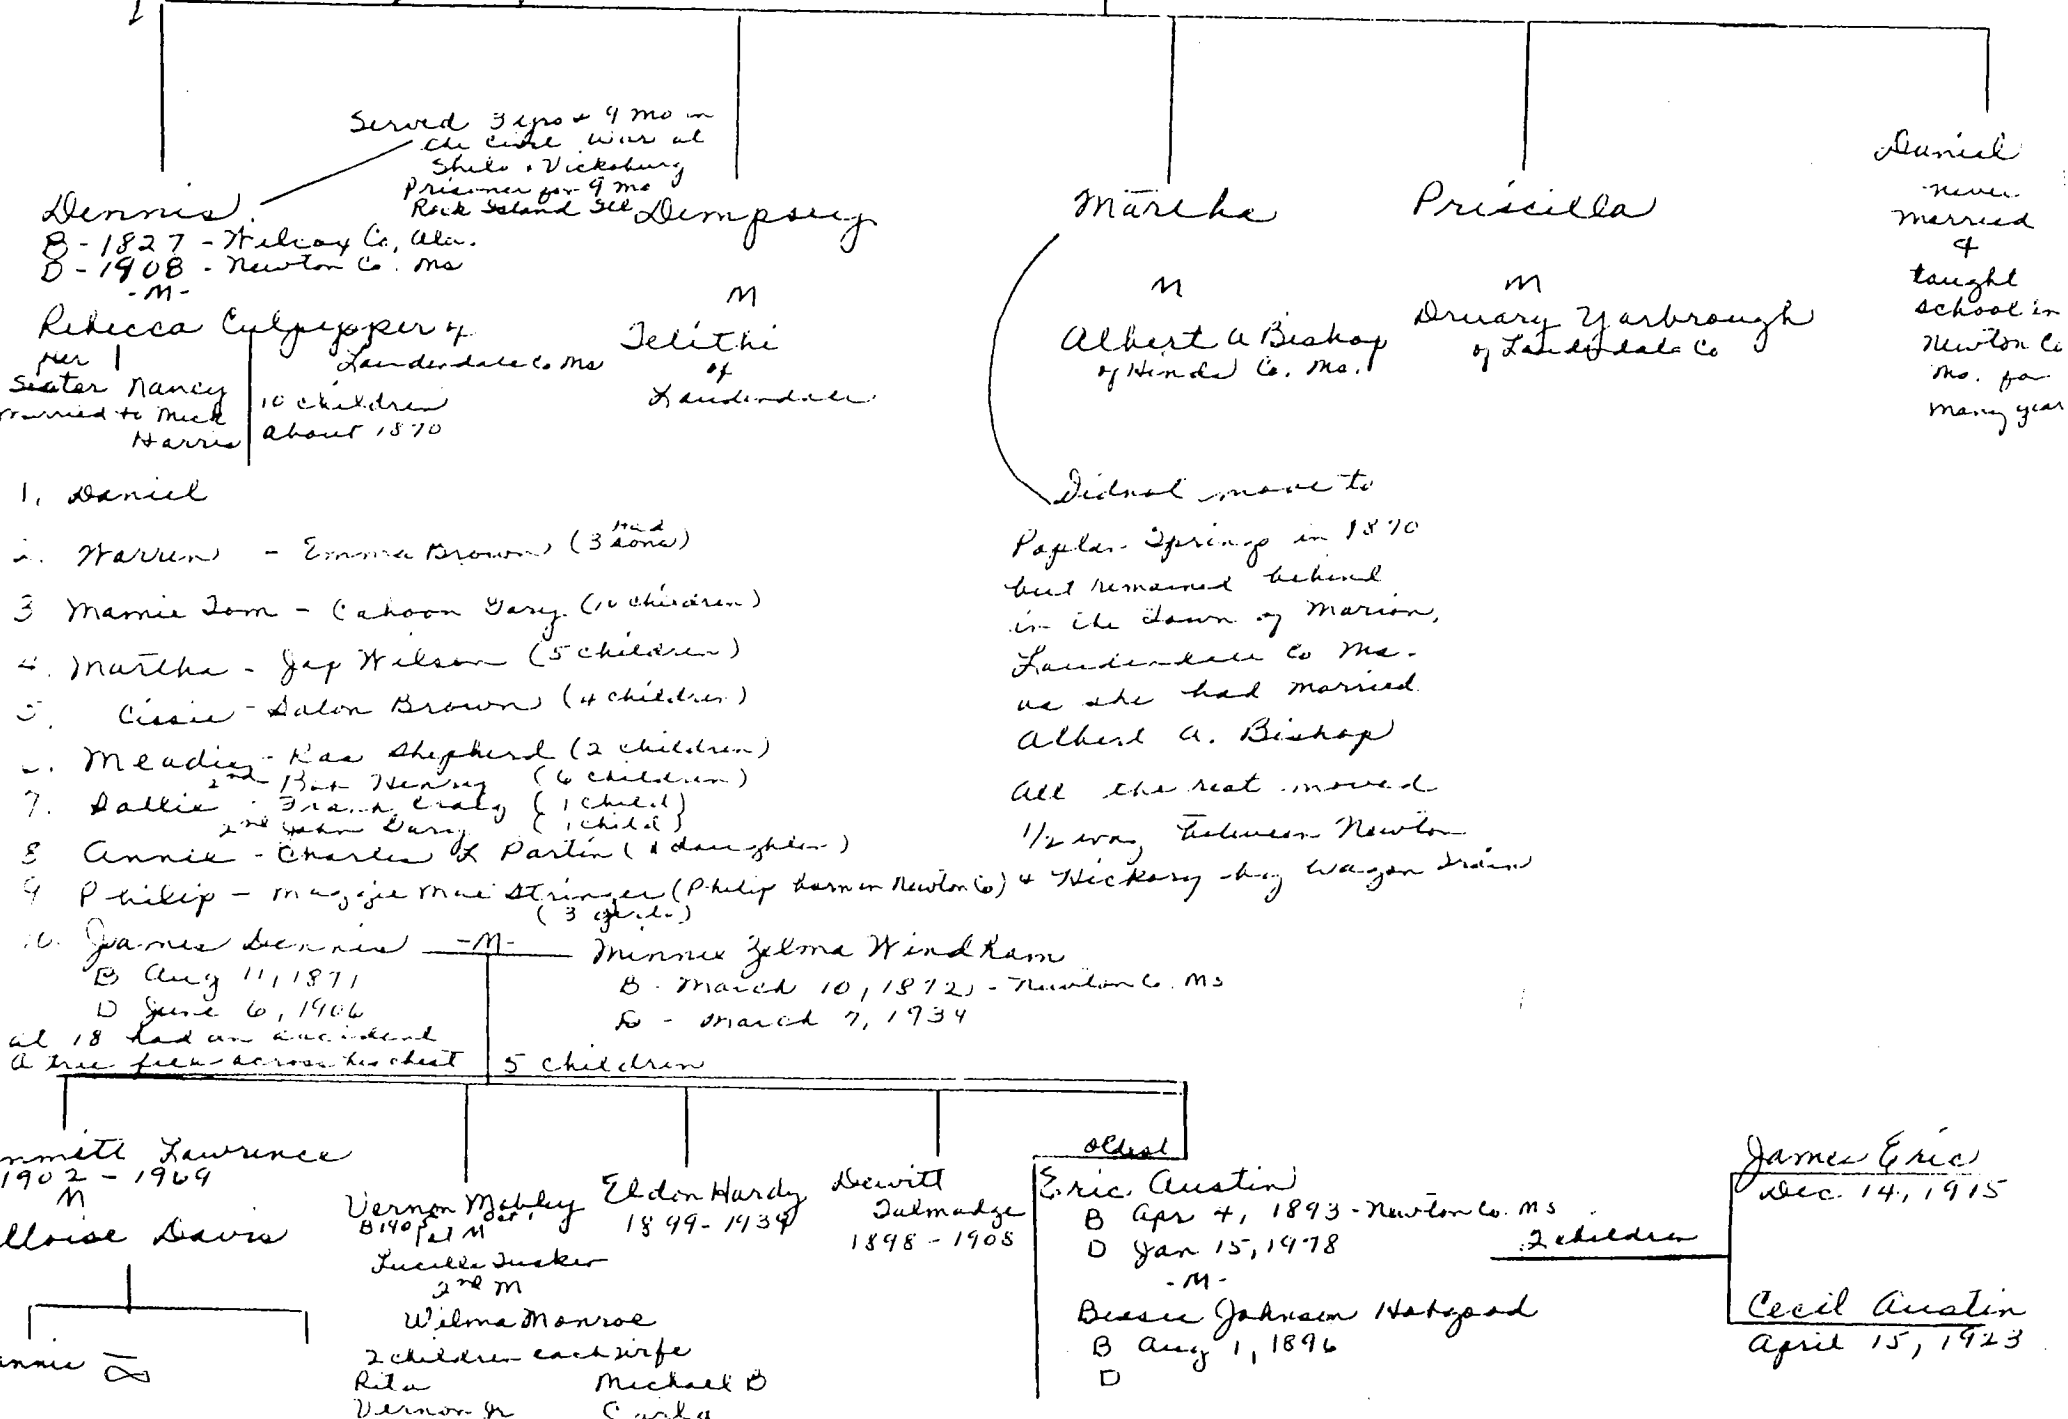 Served 3 yrs + 9 mo in
the Civil War at
Shilo + Vicksburg
Prisoner for 9 mo
Rock Island Ill
Dennis
B - 1827 - Wilcox Co, Ala.
D - 1908 - Newton Co. Ms
- M -
Rebecca Culpepper of
Lauderdale Co Ms
her
Sister Nancy
married to Mick
Harris
10 children
about 1870
Dempsey
M
Telithi
of
Lauderdale
Martha
M
Albert A Bishop
of Hinds Co. Ms.
Priscilla
M
Druary Yarbrough
of Lauderdale Co
Daniel
never
married
&
taught
school in
Newton Co
Ms. for
many year
1. Daniel
2. Warren - Emma Brown (had 3 sons)
3 Mamie Tom - Cahoon Gary (10 children)
4. Martha - Jap Wilson (5 children)
5. Cissie - Salon Brown (4 children)
Meadie - Ras Shepherd (2 children)
2nd Bob Henry (6 children)
7. Sallie - Frank Craig (1 child)
2nd John Gary (1 child)
8 Annie - Charles L Partin (1 daughter)
9 Philip - Maggie Mae Stringer (Philip born in Newton Co)
(3 girls)
10. James Dennis -M- Minnie Zelma Windham
B Aug 11, 1871
D June 6, 1906
at 18 had an accident
a tree fell across his chest
B - March 10, 1872 - Newton Co. Ms
D - March 7, 1934
5 children
Did not move to
Poplar Springs in 1870
but remained behind
in the town of Marion,
Lauderdale Co Ms.
as she had married
Albert A. Bishop
All the rest moved
1/2 way between Newton
& Hickory by wagon train
mmett Lawrence
1902 - 1969
M
lloise Davis
nnie
Vernon Mobley
1st M
Lucille Tusker
2nd M
Wilma Monroe
2 children each wife
Rita Michael B
Vernon Jr Carla
Eldon Hardy
1899 - 1939
Dewitt
Talmadge
1898 - 1905
oldest
Eric Austin
B Apr 4, 1893 - Newton Co. Ms
D Jan 15, 1978
- M -
Bessie Johnson Hobgood
B Aug 1, 1896
D
2 children
James Eric
Dec. 14, 1915
Cecil Austin
April 15, 1923